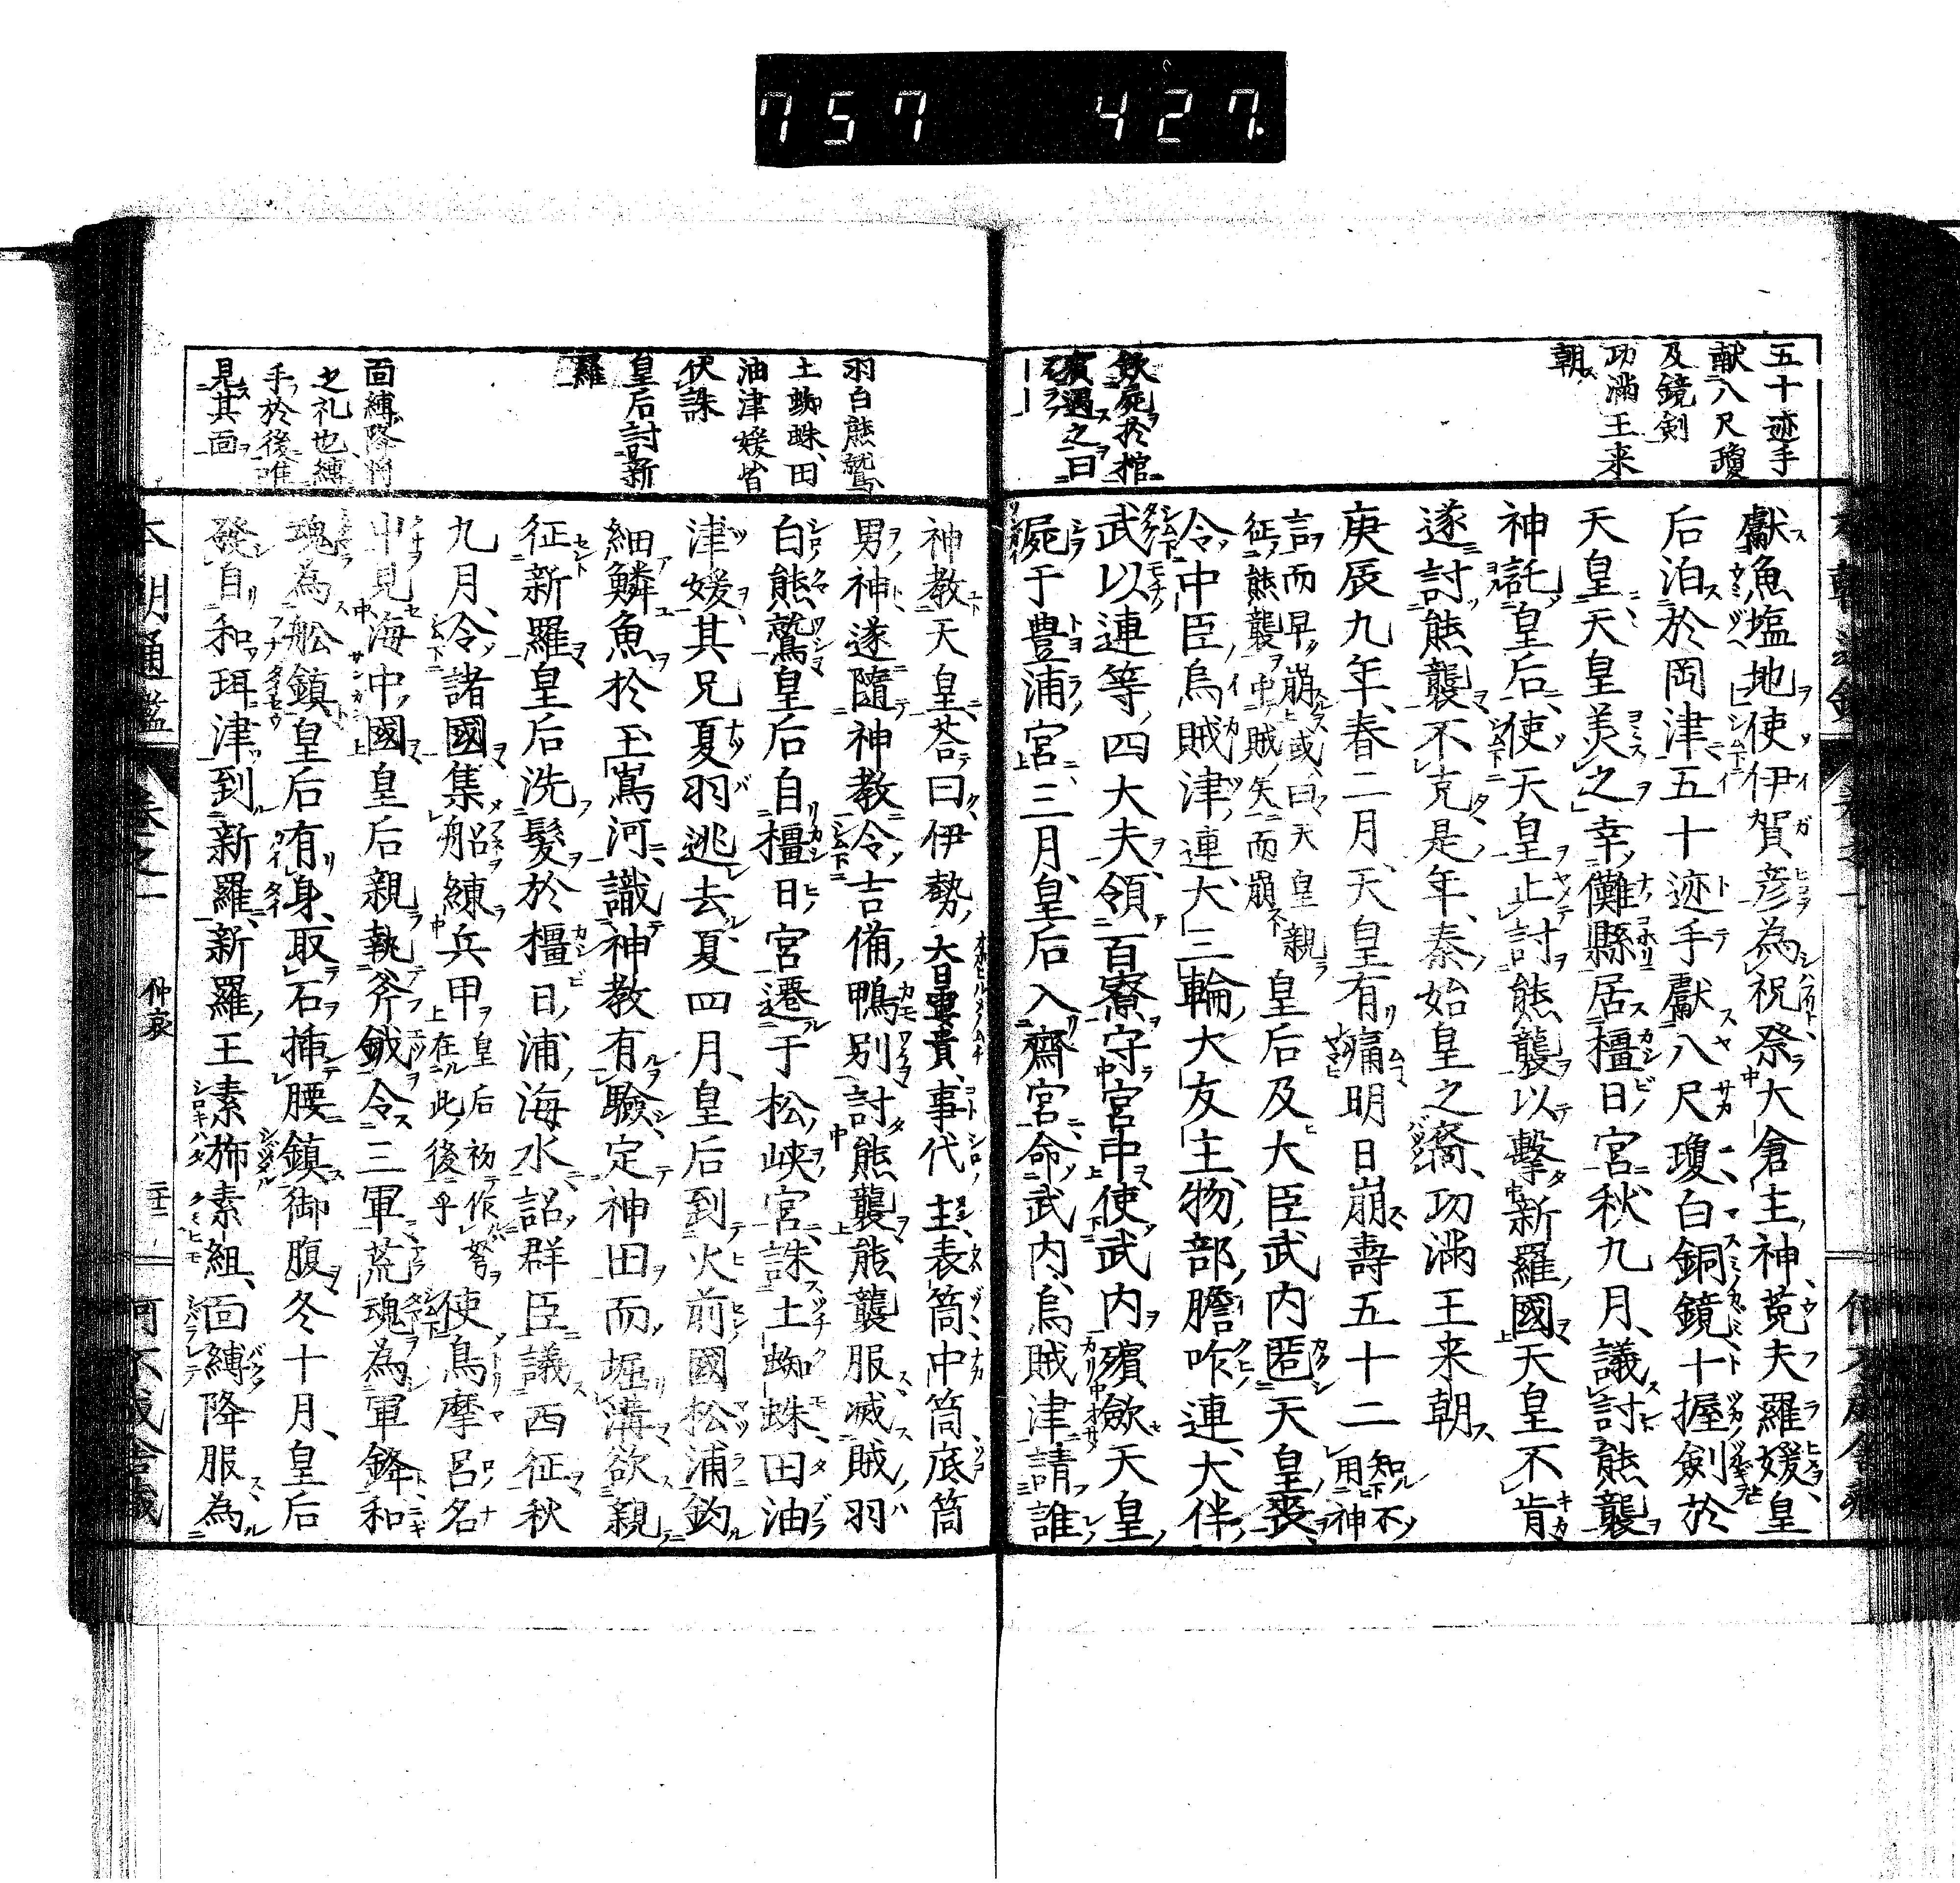 757 427
五十迹手
獻八尺瓊
及鏡剣
功満王来
朝
歛屍於棺
賓遇之曰
獻魚塩地使伊賀彦為祝祭大倉主神菟夫羅媛皇
后泊於岡津五十迹手獻八尺瓊白銅鏡十握剣於
天皇天皇美之幸儺縣居橿日宮秋九月議討熊襲
神託皇后使天皇止討熊襲以撃新羅國天皇不肯
遂討熊襲不克是年秦始皇之裔功満王来朝
庚辰九年春二月天皇有痛明日崩壽五十二知不用神
言而早崩或曰天皇親征熊襲中賊矢而崩皇后及大臣武内匿天皇喪
令中臣烏賊津連大三輪大友主物部膽咋連大伴
武以連等四大夫領百寮守宮中使武内殯歛天皇
屍于豊浦宮三月皇后入齋宮命武内烏賊津請誰
羽白熊鷲
土蜘蛛田
油津媛皆
伏誅
皇后討新
羅
面縛降服
之礼也縛
手於後唯
見其面
神教天皇荅曰伊勢大日孁貴事代主表筒中筒底筒
男神遂隨神教令吉備鴨別討熊襲熊襲服滅賊羽
白熊鷲皇后自橿日宮遷于松峡宮誅土蜘蛛田油
津媛其兄夏羽逃去夏四月皇后到火前國松浦釣
細鱗魚於玉嶌河識神教有驗定神田而堀溝欲親
征新羅皇后洗髪於橿日浦海水詔群臣議西征秋
九月令諸國集船練兵甲皇后初作弩在此後乎使烏摩呂名
中見海中國皇后親執斧鉞令三軍荒魂為軍鋒和
魂為舩鎮皇后有身取石挿腰鎮御腹冬十月皇后
發自和珥津到新羅新羅王素旆素組面縛降服為
本朝通鑑 卷之一 仲哀